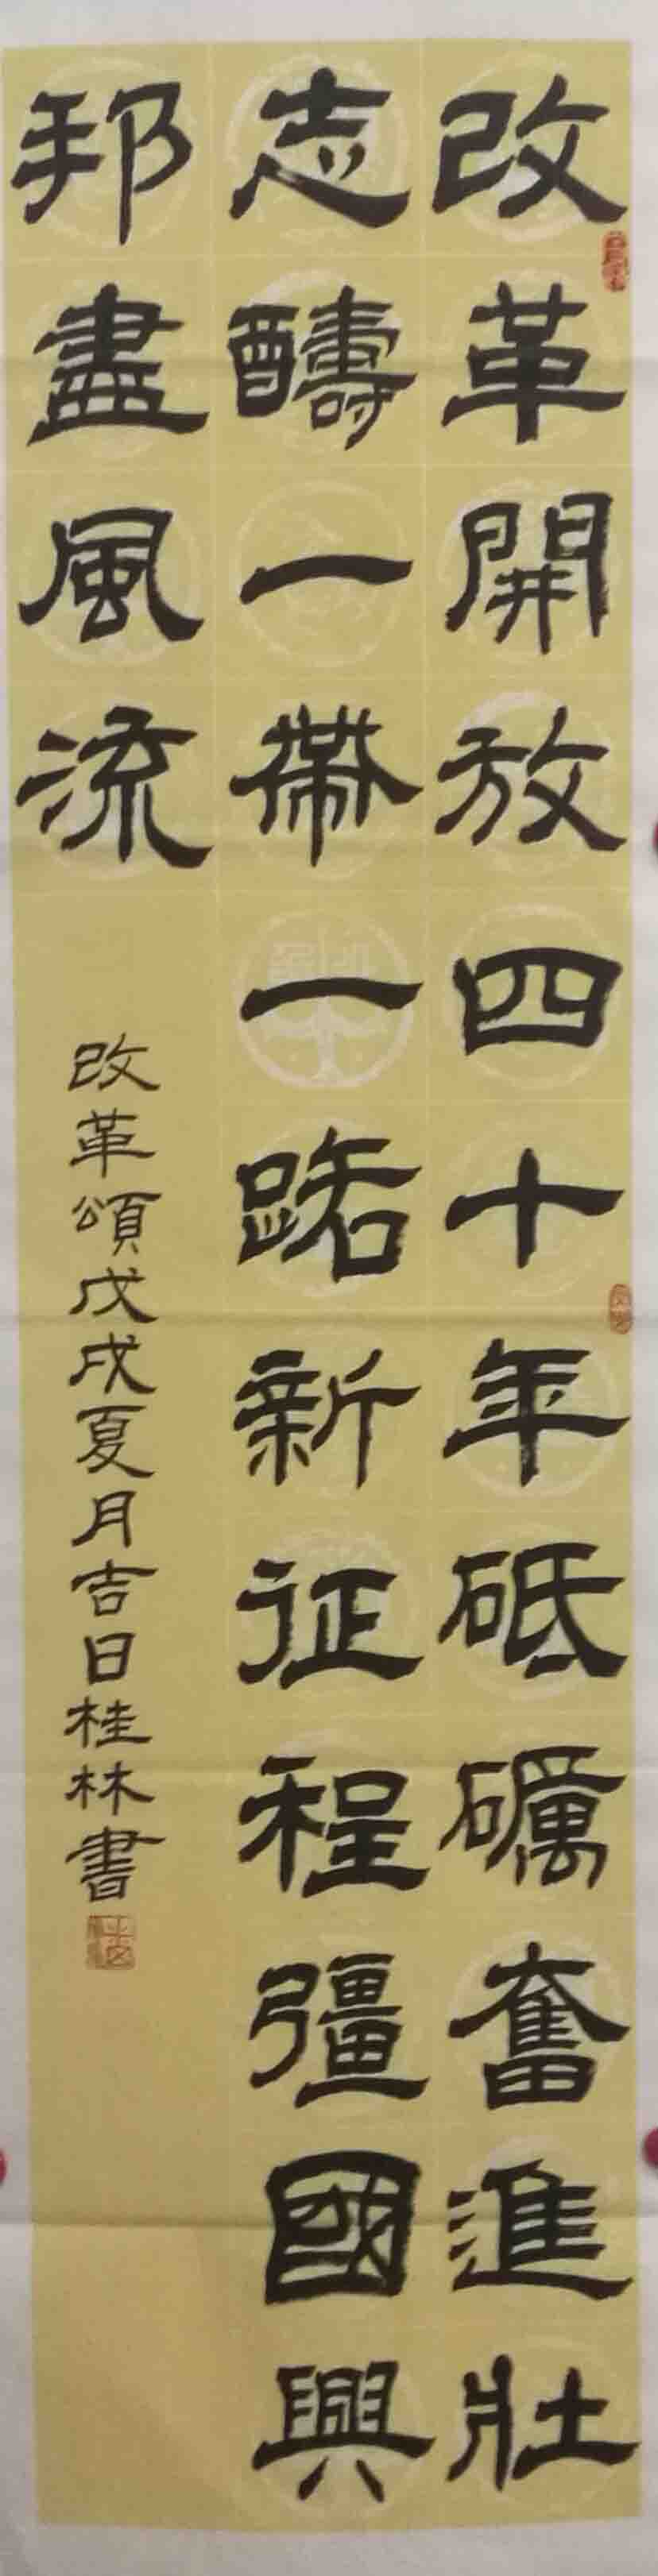 改革開放四十年砥礪奮進壯
志疇一帶一路新征程彊國興
邦盡風流
改革頌戊戌夏月吉日桂林書